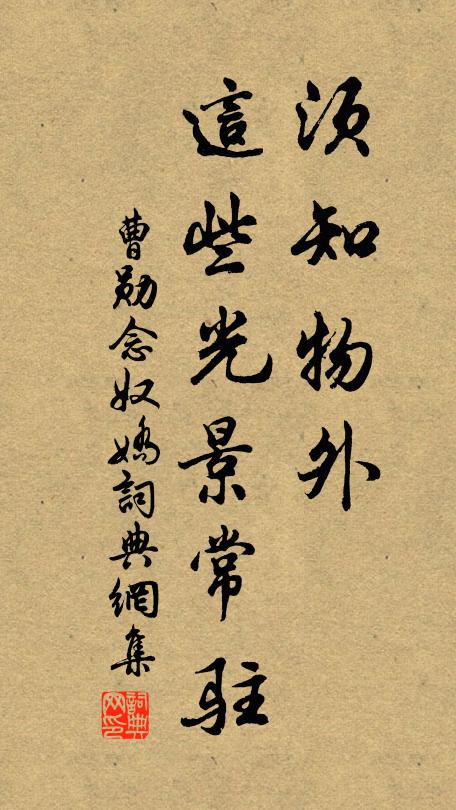 須知物外
這些光景常駐
曹勛念奴嬌詞典網集
詞典网印